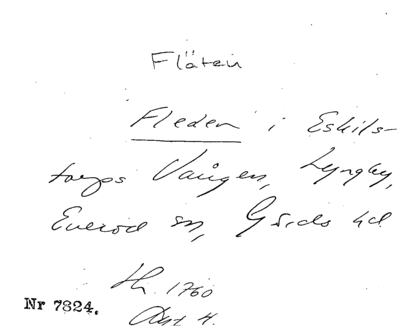 Fläten
Fleden i Eskils-
torps Vången, Lyngby,
Everöd sn, Gärds hd
Nr 7824.
1760
Akt 4.